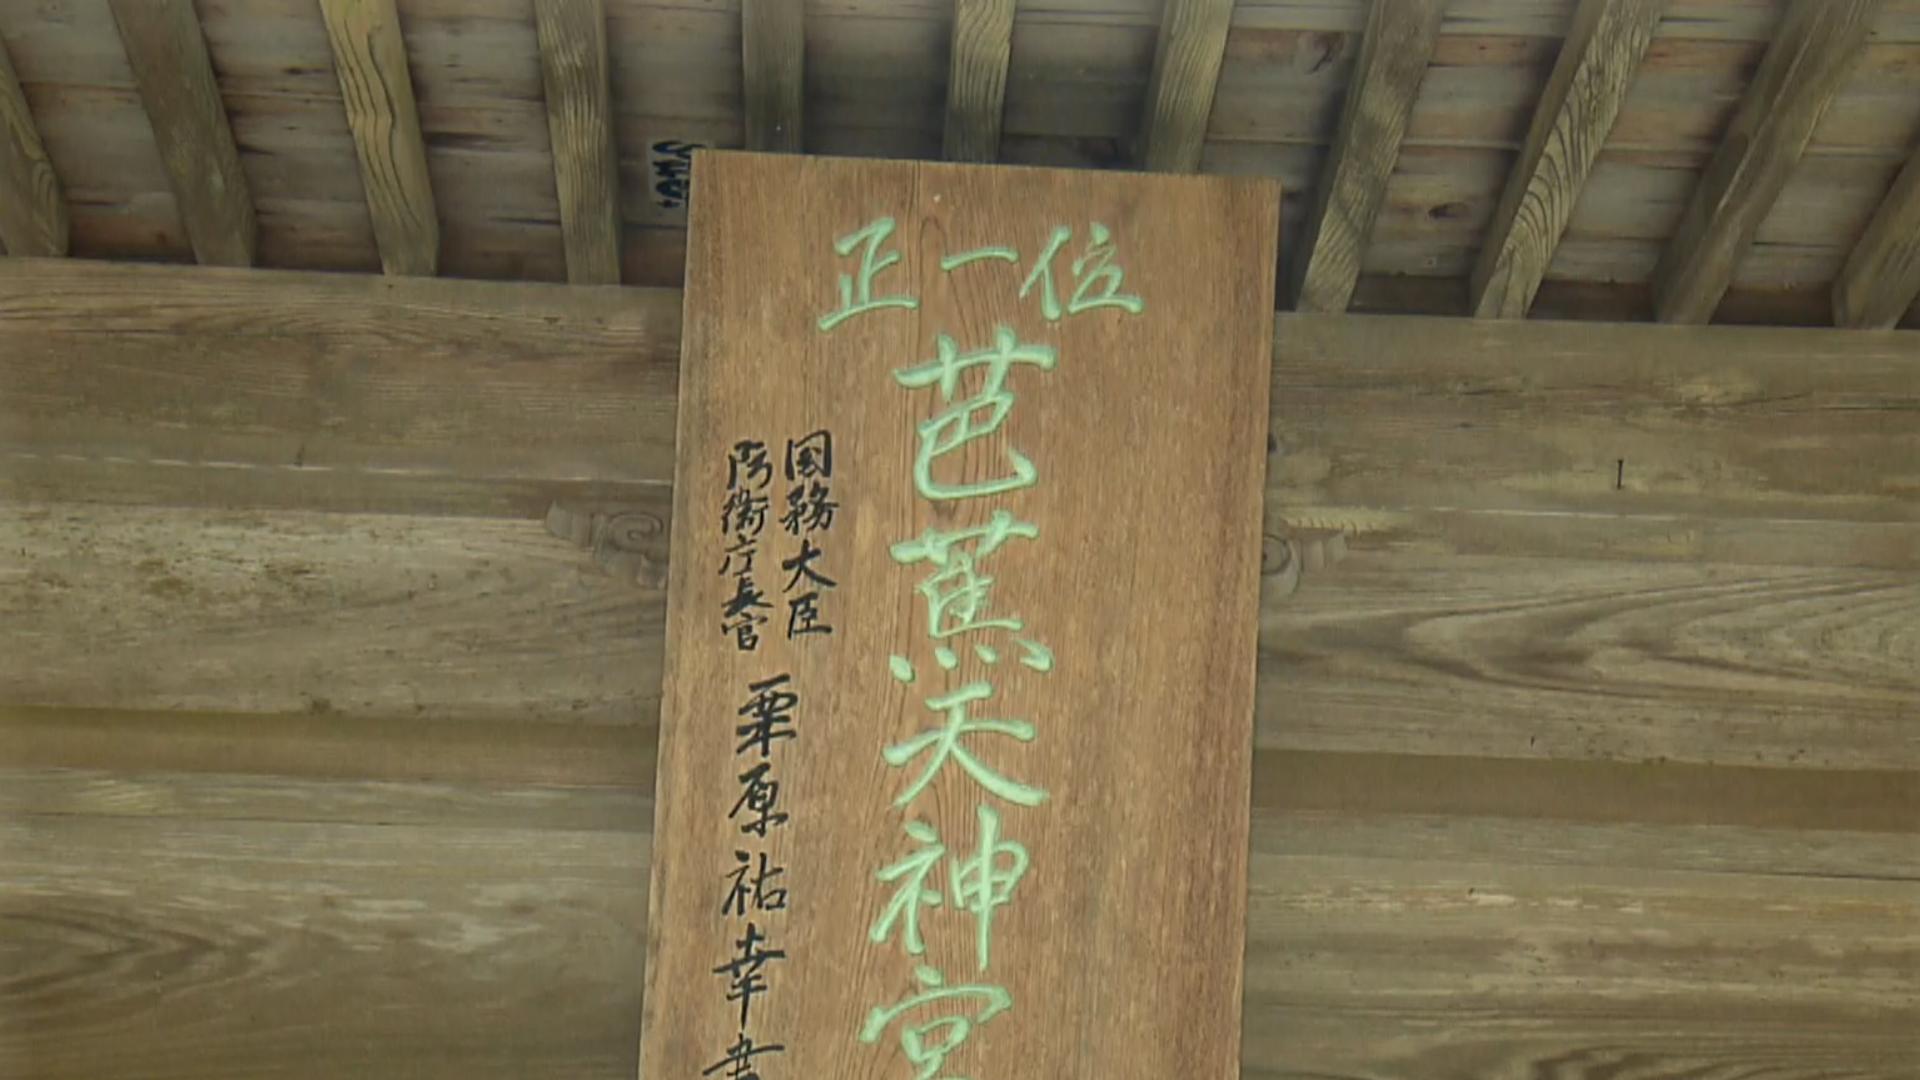 正一位
芭蕉天神宮
国務大臣
防衛庁長官
栗原祐幸書